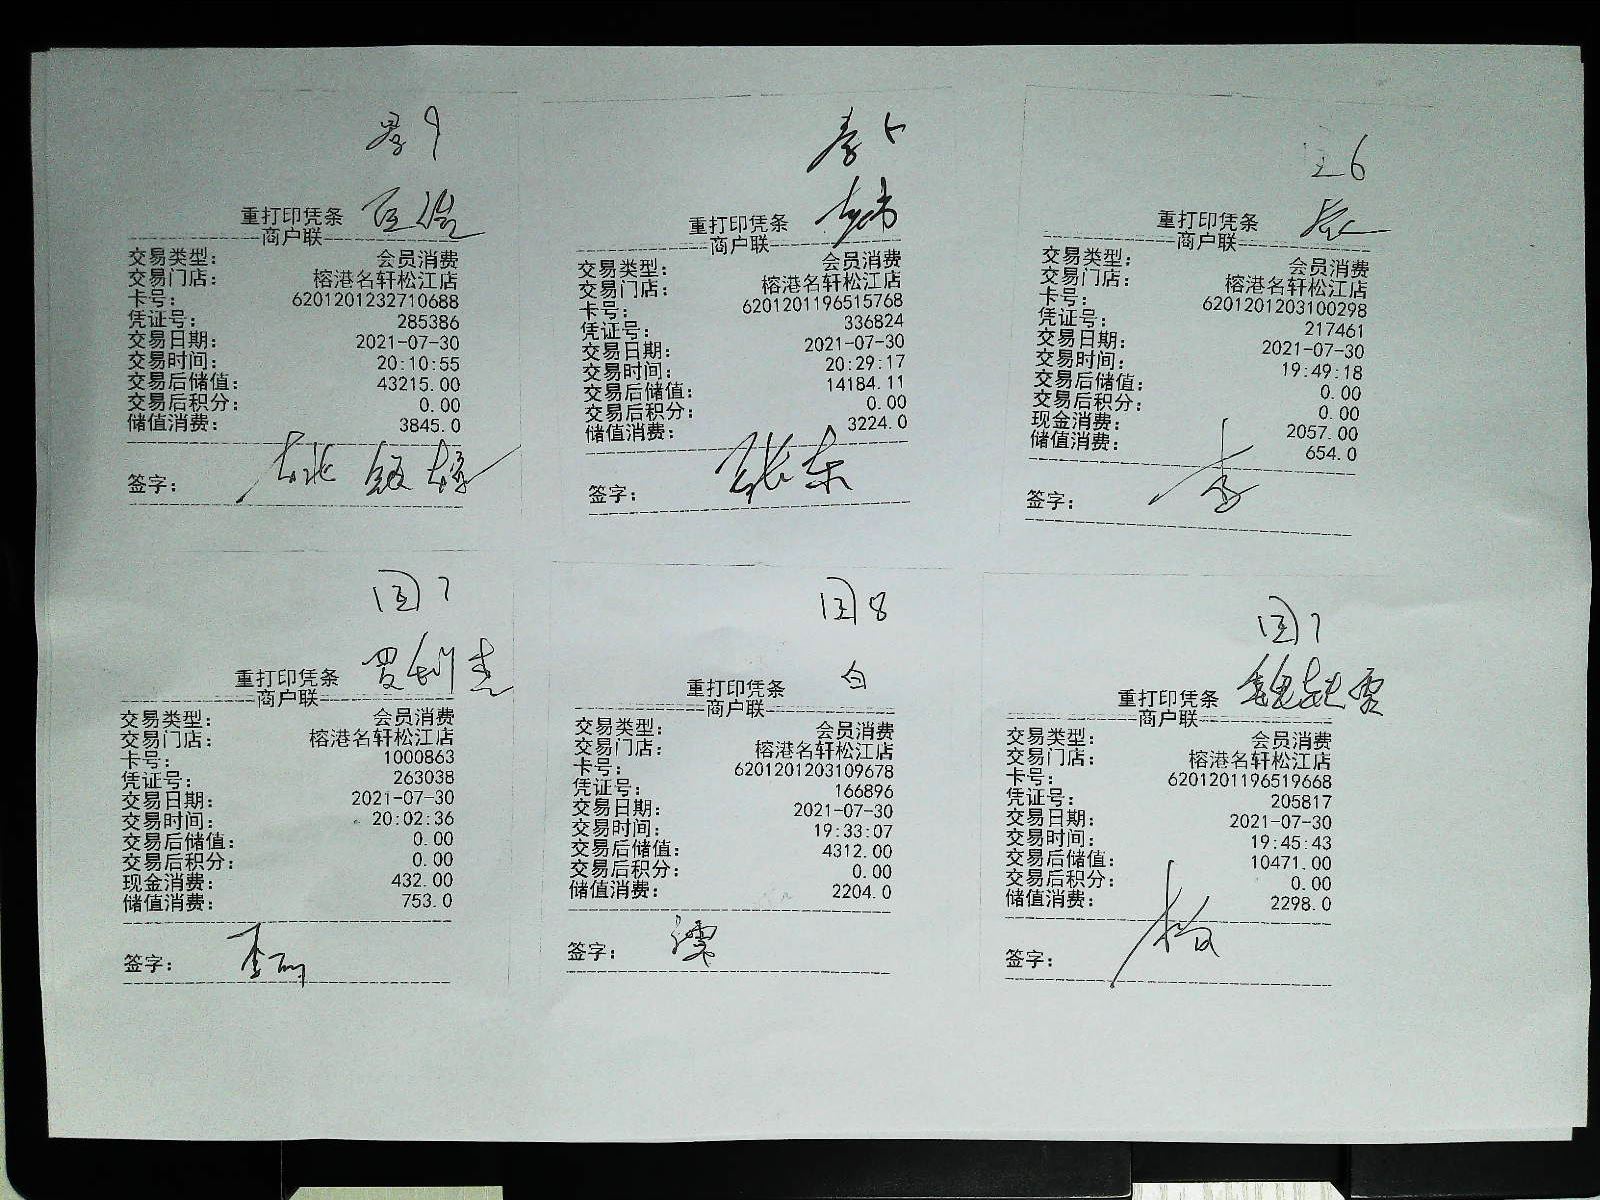 9
重打印凭条
商户联
交易类型： 会员消费
交易门店： 榕港名轩松江店
卡号： 6201201232710688
凭证号： 285386
交易日期： 2021-07-30
交易时间： 20:10:55
交易后储值： 43215.00
交易后积分： 0.00
储值消费： 3845.0
签字：
重打印凭条
商户联
交易类型： 会员消费
交易门店： 榕港名轩松江店
卡号： 6201201196515768
凭证号： 336824
交易日期： 2021-07-30
交易时间： 20:29:17
交易后储值： 14184.11
交易后积分： 0.00
储值消费： 3224.0
签字： 张东
6
重打印凭条
商户联
交易类型： 会员消费
交易门店： 榕港名轩松江店
卡号： 6201201203100298
凭证号： 217461
交易日期： 2021-07-30
交易时间： 19:49:18
交易后储值： 0.00
交易后积分： 0.00
现金消费： 2057.00
储值消费： 654.0
签字： 李
国7
重打印凭条
商户联
交易类型： 会员消费
交易门店： 榕港名轩松江店
卡号： 1000863
凭证号： 263038
交易日期： 2021-07-30
交易时间： 20:02:36
交易后储值： 0.00
交易后积分： 0.00
现金消费： 432.00
储值消费： 753.0
签字：
国8
白
重打印凭条
商户联
交易类型： 会员消费
交易门店： 榕港名轩松江店
卡号： 6201201203109678
凭证号： 166896
交易日期： 2021-07-30
交易时间： 19:33:07
交易后储值： 4312.00
交易后积分： 0.00
储值消费： 2204.0
签字：
国7
重打印凭条
商户联
交易类型： 会员消费
交易门店： 榕港名轩松江店
卡号： 6201201196519668
凭证号： 205817
交易日期： 2021-07-30
交易时间： 19:45:43
交易后储值： 10471.00
交易后积分： 0.00
储值消费： 2298.0
签字：